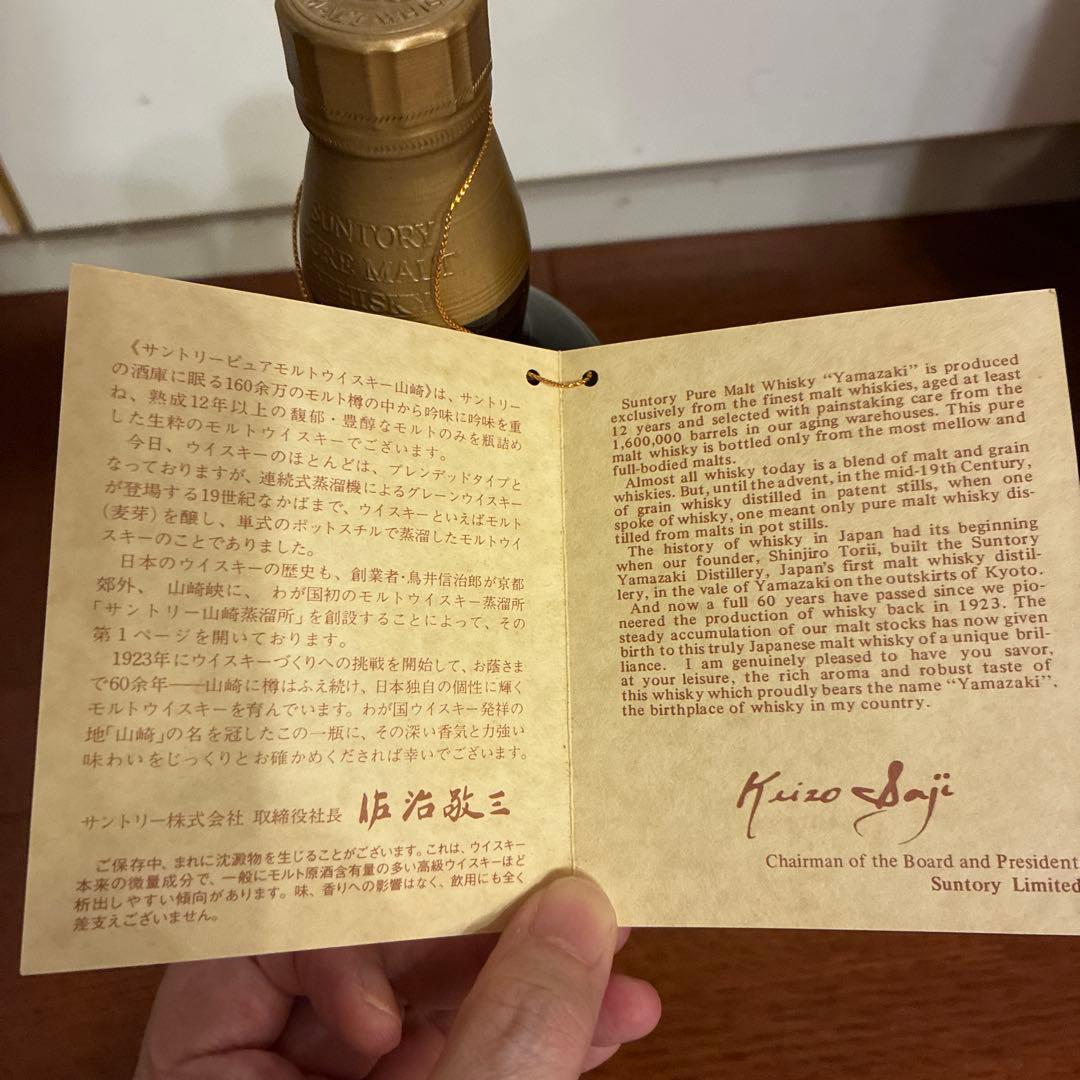 MALT WHIS
SUNTORY
PURE MALT
WHISKY
《サントリーピュアモルトウイスキー山崎》は、サントリー
の酒庫に眠る160余万のモルト樽の中から吟味に吟味を重
ね、熟成12年以上の馥郁・豊醇なモルトのみを瓶詰め
した生粋のモルトウイスキーでございます。
今日、ウイスキーのほとんどは、ブレンデッドタイプと
なっておりますが、連続式蒸溜機によるグレーンウイスキー
が登場する19世紀なかばまで、ウイスキーといえばモルト
(麦芽)を醸し、単式のポットスチルで蒸溜したモルトウイ
スキーのことでありました。
日本のウイスキーの歴史も、創業者・鳥井信治郎が京都
郊外、山崎峡に、わが国初のモルトウイスキー蒸溜所
「サントリー山崎蒸溜所」を創設することによって、その
第1ページを開いております。
1923年にウイスキーづくりへの挑戦を開始して、お蔭さま
で60余年――山崎に樽はふえ続け、日本独自の個性に輝く
モルトウイスキーを育んでいます。わが国ウイスキー発祥の
地「山崎」の名を冠したこの一瓶に、その深い香気と力強い
味わいをじっくりとお確かめくだされば幸いでございます。
サントリー株式会社 取締役社長 佐治敬三
ご保存中、まれに沈澱物を生じることがございます。これは、ウイスキー
本来の微量成分で、一般にモルト原酒含有量の多い高級ウイスキーほど
析出しやすい傾向があります。味、香りへの影響はなく、飲用にも全く
差支えございません。
Suntory Pure Malt Whisky “Yamazaki” is produced
exclusively from the finest malt whiskies, aged at least
12 years and selected with painstaking care from the
1,600,000 barrels in our aging warehouses. This pure
malt whisky is bottled only from the most mellow and
full-bodied malts.
Almost all whisky today is a blend of malt and grain
whiskies. But, until the advent, in the mid-19th Century,
of grain whisky distilled in patent stills, when one
spoke of whisky, one meant only pure malt whisky dis-
tilled from malts in pot stills.
The history of whisky in Japan had its beginning
when our founder, Shinjiro Torii, built the Suntory
Yamazaki Distillery, Japan's first malt whisky distil-
lery, in the vale of Yamazaki on the outskirts of Kyoto.
And now a full 60 years have passed since we pio-
neered the production of whisky back in 1923. The
steady accumulation of our malt stocks has now given
birth to this truly Japanese malt whisky of a unique bril-
liance. I am genuinely pleased to have you savor,
at your leisure, the rich aroma and robust taste of
this whisky which proudly bears the name “Yamazaki”,
the birthplace of whisky in my country.
Keizo Saji
Chairman of the Board and President
Suntory Limited